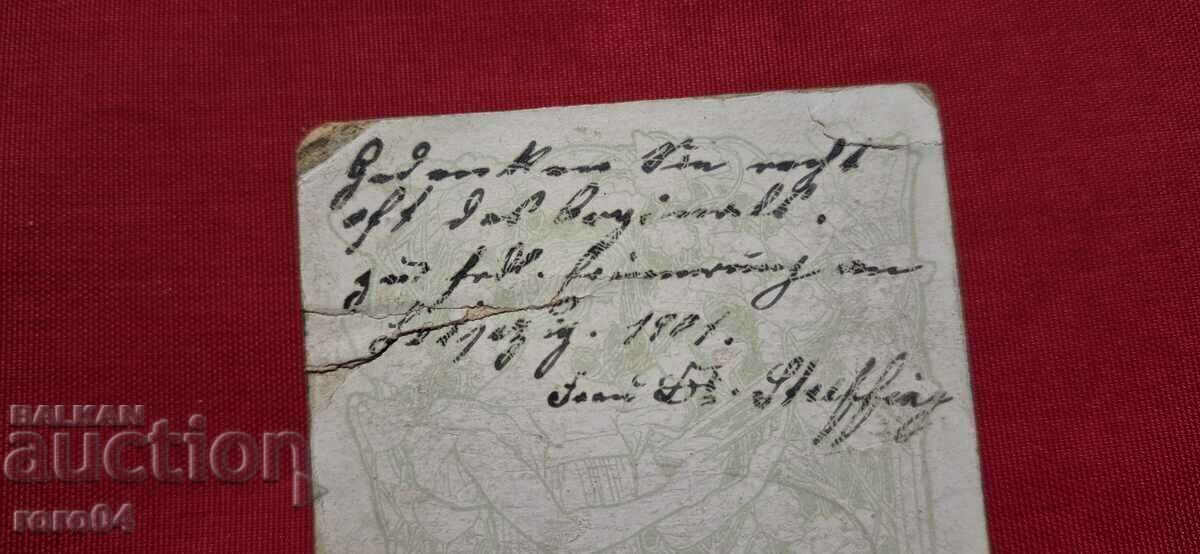 Gedenken Sie recht
oft des Originals.
Zur frdl. Erinnerung an
Leipzig. 1901.
Frau Dr. Steffing
BALKAN
auction
roro04